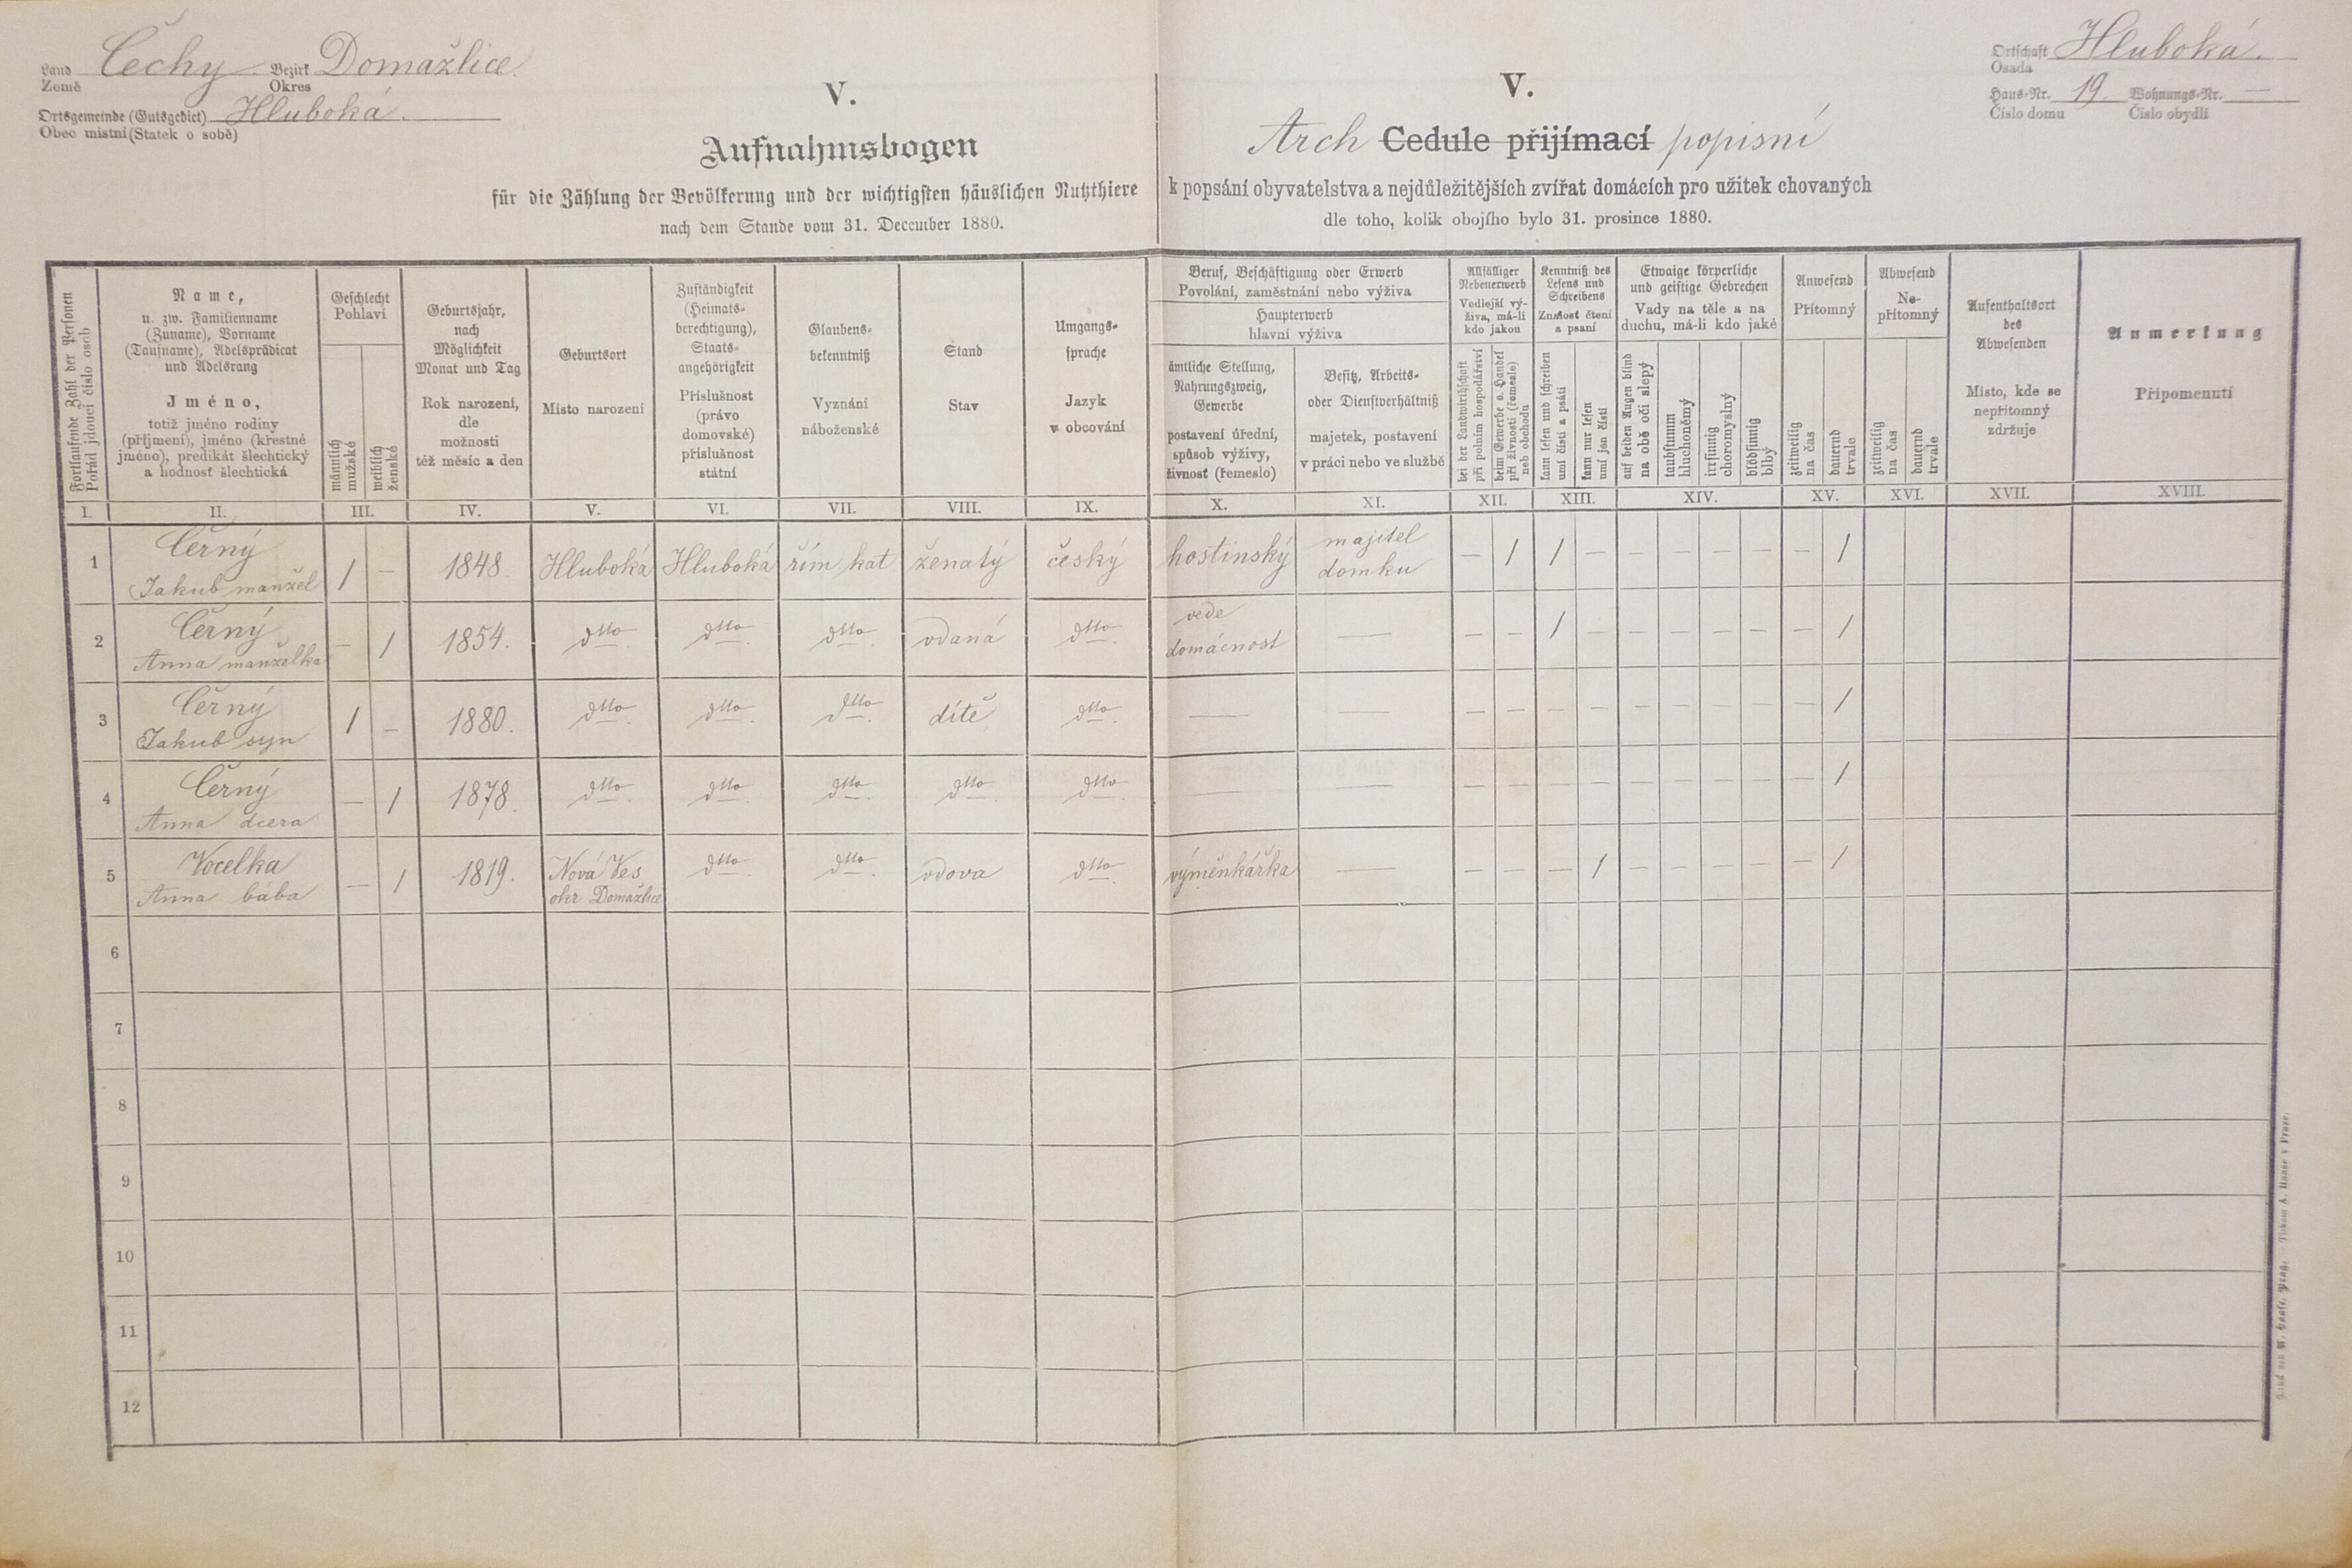 Land Čechy Bezirk Domažlice.
Země Okres
Ortsgemeinde (Gutsgebiet) Hluboká.
Obec místní (Statek o sobě)
V.
Aufnahmsbogen
für die Zählung der Bevölkerung und der wichtigsten häuslichen Nutzthiere
nach dem Stande vom 31. December 1880.
Ortschaft Hluboká.
Osada
Haus-Nr. 19. Wohnungs-Nr. —
Číslo domu Číslo obydlí
V.
Arch Cedule přijímací popisní
k popsání obyvatelstva a nejdůležitějších zvířat domácích pro užitek chovaných
dle toho, kolik obojího bylo 31. prosince 1880.
Fortlaufende Zahl der Personen
Pořád jdoucí číslo osob
Name,
u. zw. Familienname
(Zuname), Vorname
(Taufname), Adelsprädicat
und Adelsrang
Jméno,
totiž jméno rodiny
(příjmení), jméno (křestné
jméno), predikát šlechtický
a hodnost šlechtická
Geschlecht
Pohlaví
männlich
mužské
weiblich
ženské
Geburtsjahr,
nach
Möglichkeit
Monat und Tag
Rok narození,
dle
možnosti
též měsíc a den
Geburtsort
Místo narození
Zuständigkeit
(Heimats-
berechtigung),
Staats-
angehörigkeit
Příslušnost
(právo
domovské)
příslušnost
státní
Glaubens-
bekenntniß
Vyznání
náboženské
Stand
Stav
Umgangs-
sprache
Jazyk
v obcování
Beruf, Beschäftigung oder Erwerb
Povolání, zaměstnání nebo výživa
Haupterwerb
hlavní výživa
ämtliche Stellung,
Nahrungszweig,
Gewerbe
postavení úřední,
spůsob výživy,
živnost (řemeslo)
Besitz, Arbeits-
oder Dienstverhältniß
majetek, postavení
v práci nebo ve službě
Allfälliger
Nebenerwerb
Vedlejší vý-
živa, má-li
kdo jakou
bei der Landwirthschaft
při polním hospodářství
beim Gewerbe o. Handel
při živnosti (řemesle)
neb obchodu
Kenntniß des
Lesens und
Schreibens
Známost čtení
a psaní
kann lesen und schreiben
umí čísti a psáti
kann nur lesen
umí jen čísti
Etwaige körperliche
und geistige Gebrechen
Vady na těle a na
duchu, má-li kdo jaké
auf beiden Augen blind
na obě oči slepý
taubstumm
hluchoněmý
irrsinnig
choromyslný
blödsinnig
blbý
Anwesend
Přítomný
zeitweilig
na čas
dauernd
trvale
Abwesend
Ne-
přítomný
zeitweilig
na čas
dauernd
trvale
Aufenthaltsort
des
Abwesenden
Místo, kde se
nepřítomný
zdržuje
Anmerkung
Připomenutí
I. II. III. IV. V. VI. VII. VIII. IX. X. XI. XII. XIII. XIV. XV. XVI. XVII. XVIII.
1 Černý
Jakub manžel / — 1848. Hluboká Hluboká řím. kat ženatý český hostinský majitel
domku — / / — — — — — — /
2 Černý
Anna manželka — / 1854. dtto dtto dtto vdaná dtto vede
domácnost — — — / — — — — — — /
3 Černý
Jakub syn / — 1880. dtto dtto dtto dítě dtto — — — — — — — — — — — /
4 Černý
Anna dcera — / 1878. dtto dtto dtto dtto dtto — — — — — — — — — — — /
5 Vocelka
Anna bába — / 1819. Nová Ves
okr. Domažlice dtto dtto vdova dtto výměnkářka — — — — / — — — — — /
6
7
8
9
10
11
12